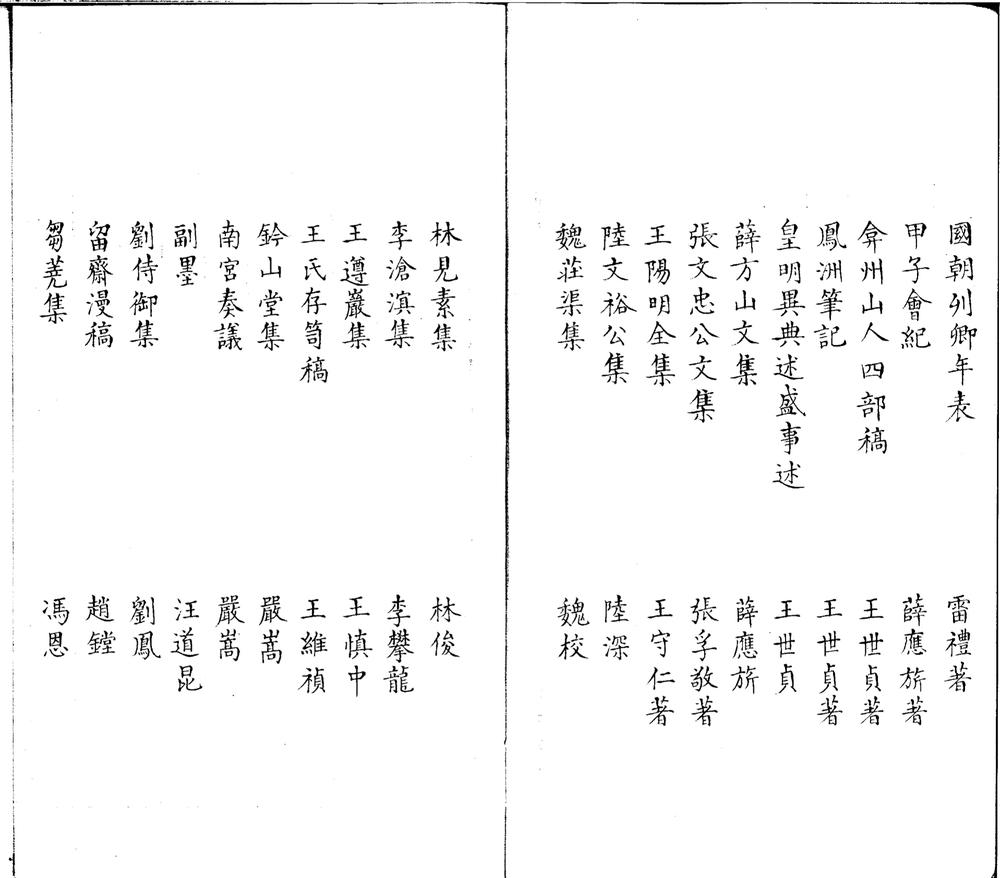 國朝列卿年表 雷禮著
甲子會紀 薛應旂著
弇州山人四部稿 王世貞著
鳳洲筆記 王世貞著
皇明異典述盛事述 王世貞
薛方山文集 薛應旂
張文忠公文集 張孚敬著
王陽明全集 王守仁著
陸文裕公集 陸深
魏莊渠集 魏校
林見素集 林俊
李滄溟集 李攀龍
王遵巖集 王慎中
王氏存笥稿 王維禎
鈐山堂集 嚴嵩
南宮奏議 嚴嵩
副墨 汪道昆
劉侍御集 劉鳳
留齋漫稿 趙鏜
芻蕘集 馮恩